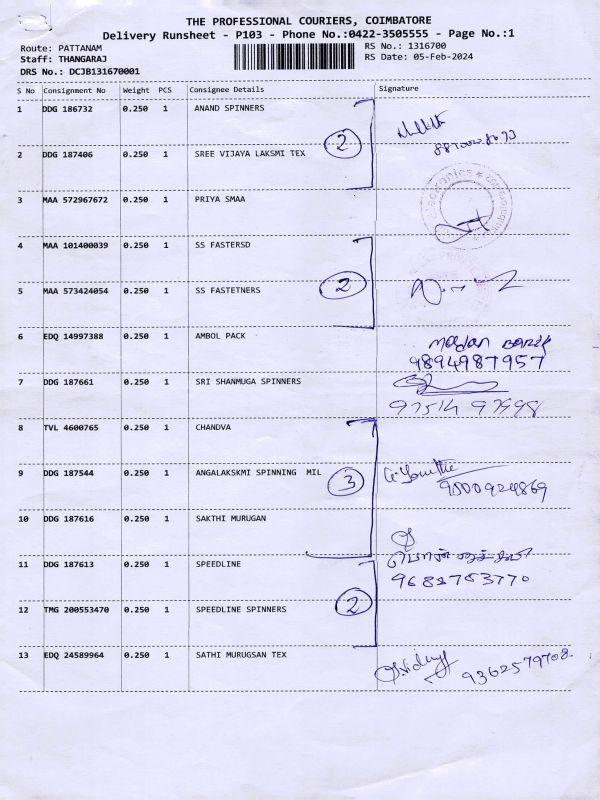 THE PROFESSIONAL COURIERS, COIMBATORE
Delivery Runsheet - P103 - Phone No.:0422-3505555 - Page No.:1
Route: PATTANAM
RS No.: 1316700
Staff: THANGARAJ
RS Date: 05-Feb-2024
DRS No.: DCJB131670001
S No Consignment No Weight PCS Consignee Details Signature
1 DDG 186732 0.250 1 ANAND SPINNERS
2
2 DDG 187406 0.250 1 SREE VIJAYA LAKSMI TEX
3 MAA 572967672 0.250 1 PRIYA SMAA
4 MAA 101400039 0.250 1 SS FASTERSD
2
5 MAA 573424054 0.250 1 SS FASTETNERS
6 EDQ 14997388 0.250 1 AMBOL PACK
9894987957
7 DDG 187661 0.250 1 SRI SHANMUGA SPINNERS
97514 97998
8 TVL 4600765 0.250 1 CHANDVA
9 DDG 187544 0.250 1 ANGALAKSKMI SPINNING MIL
3
9000924869
10 DDG 187616 0.250 1 SAKTHI MURUGAN
11 DDG 187613 0.250 1 SPEEDLINE
9682753770
12 TMG 200553470 0.250 1 SPEEDLINE SPINNERS
2
13 EDQ 24589964 0.250 1 SATHI MURUGSAN TEX
9362579708.